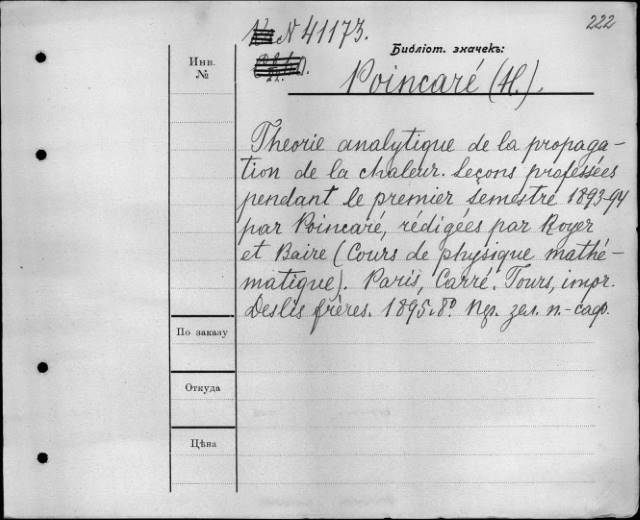 N 41173.
222
Библіот. значекъ:
Инв.
№
Poincaré (H.).
Theorie analytique de la propaga-
tion de la chaleur. Leçons professées
pendant le premier semestre 1893-94
par Poincaré, rédigées par Royer
et Baire (Cours de physique mathé-
matique). Paris, Carré. Tours, impr.
Deslis frères. 1895. 8º. Пер. зел. п.-саф.
По заказу
Откуда
Цѣна